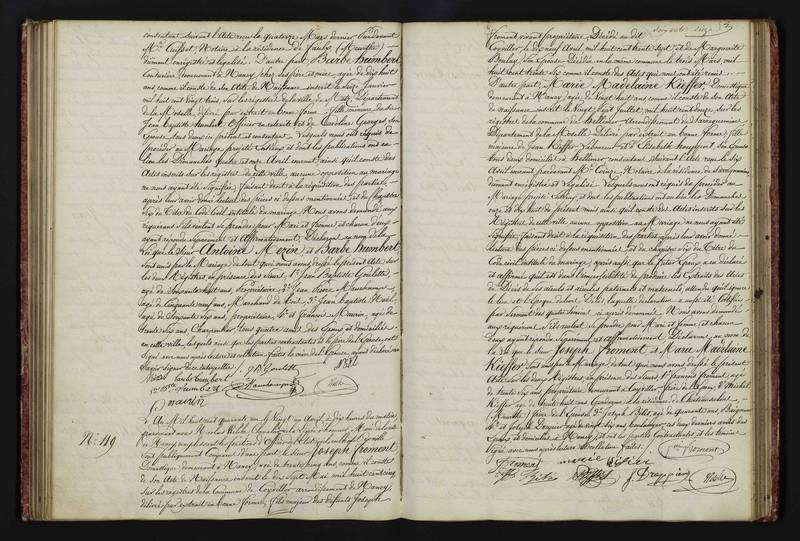 consentant suivant l'Acte reçu le quatorze Mars dernier, Pardevant
Me Cuisset Notaire à la résidence de Faulx (Meurthe)
dûment enregistré et légalisé. D'autre part Barbe Humbert
Couturière demeurant à Nancy chez ses père et mère, âgée de dix huit
ans comme il conste de son Acte de Naissance inscrit le Seize Janvier
mil huit cent vingt trois, sur les registres de la ville de Metz, Département
de la Moselle, délivré par extrait en bonne forme fille mineure de
Jean Baptiste Humbert et de Caroline Georges, son
Epouse, tous deux ici présents et consentant. Lesquels nous ont requis de
procéder au Mariage projeté entr'eux, et dont les publications ont eu
lieu les Dimanches quatre et onze Avril courant, ainsi qu'il conste des
Actes inscrits sur les registres de cette ville, aucune opposition au mariage
ne nous ayant été signifiée, faisant droit à la réquisition des parties,
après leur avoir donné lecture des pièces ci dessus mentionnées, et du chapitre
Six du Titre du Code Civil intitulé du mariage, Nous avons demandé aux
requérans s'ils veulent se prendre pour Mari et Femme, et chacun d'eux
ayant répondu séparément et Affirmativement, Déclarons au nom de la
loi que le Sieur Antoine Mezin et Barbe Humbert
sont unis par le Mariage. De tout quoi nous avons dressé le présent Acte, sur
les deux Registres, en présence des Sieurs, 1° Jean Baptiste
âgé de Soixante huit ans, Propriétaire, 2° Jean Pierre
âgé de Cinquante neuf ans, Marchand de 3° Jean Baptiste Noël
âgé de Soixante six ans, propriétaire, 4° et François Maurin, âgé de
trente six ans Charpentier, tous quatre amis des Epoux et domiciliés
en cette ville, lesquels ainsi que les parties contractantes et le père de l'épouse, ont
Signé avec nous après lecture et collation faites, la mère de l'Epouse, ayant déclaré ne
Savoir Signer de ce interpellée.
barbe humbert
Noël
maurin
N° 119
L'An Mil huit cent quarante un, le Vingt un Avril, à dix heures du matin,
pardevant nous Nicolas Chevalier de la Légion d'honneur, Maire de la ville
de Nancy, remplissant les fonctions d'Officier de l'état civil de ladite ville
ont publiquement comparu d'une part, le Sieur Joseph Fromont
Domestique demeurant à Nancy, âgé de trente cinq ans comme il conste
de son Acte de Naissance inscrit le dix Sept Mai mil huit cent cinq
Sur les registres de la Commune de Coyviller arrondissement de Nancy,
délivré par extrait en bonne forme, fils majeur des défunts Joseph
Soixante seize
Fromont vivant propriétaire, Décédé au dit
Coyviller, le dix neuf Avril mil huit cent trente Sept et de Marguerite
son Epouse Décédée en la même commune le trois Mars mil
huit cent trente Six comme il conste des Actes qui nous ont été remis.
D'autre part, Marie Madelaine Kieffer, Domestique
demeurant à Nancy, âgée de Vingt huit ans comme il conste de son Acte
de naissance inscrit le Vingt Sept Juillet, mil huit cent douze sur les
registres de la commune de Bellimer Arrondissement de Sarreguemines
Département de la Moselle, Délivré par extrait en bonne forme, fille
majeure de Jean Kieffer et d'Elisabeth son Epouse
tous deux domiciliés à Bellimer consentant suivant l'Acte reçu le Six
Avril courant pardevant Me Notaire à la résidence de Sarreguemines
dûment enregistré et Légalisé. Lesquels nous ont requis de procéder au
Mariage projeté entr'eux, et dont les publications ont eu lieu les Dimanches
onze et dix huit du présent mois ainsi qu'il conste des Actes inscrits sur les
Registres de cette ville, aucune opposition au Mariage ne nous ayant été
Signifiée, faisant droit à la réquisition des parties, après leur avoir donné
lecture des pièces ci dessus mentionnées, et du chapitre Six du Titre du
Code civil intitulé du mariage, après aussi que le futur Epoux a eu déclaré
et affirmé qu'il est dans l'impossibilité de produire les Extraits des Actes
de Décès de Ses aïeuls et aïeules paternels et maternels, attendu qu'il ignore
le lieu et l'époque de leur Décès, laquelle déclaration a aussi été Certifiée
par serment des quatre témoins ci après dénommés. Nous avons demandé
aux requérans, s'ils veulent se prendre pour Mari et femme, et chacun
d'eux ayant répondu séparément et affirmativement, Déclarons au nom de
la loi que le Sieur Joseph Fromont et Marie Madelaine
Kieffer Sont unis par le Mariage, de tout quoi nous avons dressé le présent
Acte sur les deux Registres, en présence des Sieurs, 1° François Fromont, âgé
de trente Six ans, propriétaire, demeurant à Coyviller, frère de l'époux, 2° Michel
Kieffer âgé de trente huit ans, à la résidence de
(Meurthe) frère de l'Epouse 3° Joseph âgé de quarante ans,
4° et Joseph Drappier âgé de vingt Six ans, ces deux derniers amis des
Epoux et domiciliés à Nancy, et ont les parties Contractantes et les témoins
Signé avec nous après lecture et collation faites.
fromont
fromont
marie kiefer
J. Drappier